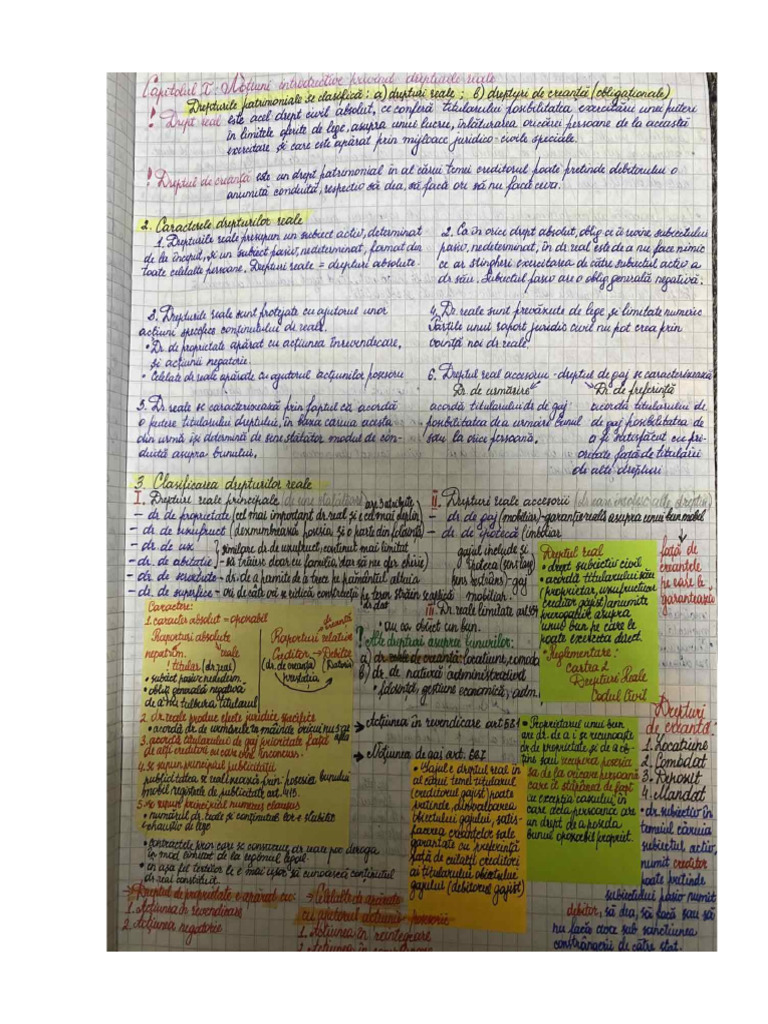 Capitolul I: Noțiuni introductive privind drepturile reale
Drepturile patrimoniale se clasifică: a) drepturi reale; b) drepturi de creanță (obligaționale)
! Drept real este acel drept civil absolut, ce conferă titularului posibilitatea exercitării unei puteri
în limitele oferite de lege, asupra unui lucru, înlăturarea oricărei persoane de la această
exercitare și care este apărat prin mijloace juridico-civile speciale.
! Dreptul de creanță este un drept patrimonial în al cărui temei creditorul poate pretinde debitorului o
anumită conduită, respectiv să dea, să facă ori să nu facă ceva.
2. Caracterele drepturilor reale
1. Drepturile reale presupun un subiect activ, determinat
de la început, și un subiect pasiv, nedeterminat, format din
toate celelalte persoane. Drepturi reale = drepturi absolute.
2. Ca în orice drept absolut, oblig ce îi revine subiectului
pasiv, nedeterminat, în dr real este de a nu face nimic
ce ar stingheri exercitarea de către subiectul activ a
dr său. Subiectul pasiv are o oblig generală negativă.
3. Drepturile reale sunt protejate cu ajutorul unor
acțiuni specifice conținutului dr reale.
• Dr. de proprietate apărat cu acțiunea în revendicare,
și acțiunii negatorie.
• Celelalte dr reale apărate cu ajutorul acțiunilor posesorii
4. Dr. reale sunt prevăzute de lege și limitate numeric
Părțile unui raport juridic civil nu pot crea prin
voință noi dr reale.
5. Dr reale se caracterizează prin faptul că acordă
o putere titularului dreptului, în baza căruia acesta
din urmă își determină de sine stătător modul de con-
duită asupra bunului.
6. Dreptul real accesoriu - dreptul de gaj se caracterizează
Dr. de urmărire
acordă titularului dr de gaj
posibilitatea de a urmări bunul
sau la orice persoană.
Dr. de preferință
acordă titularului dr
de gaj posibilitatea de
a fi satisfăcut cu pri-
oritate față de titularii
de alte drepturi
3. Clasificarea drepturilor reale
I. Drepturi reale principale (de sine stătătoare)
are 3 atribute
– dr. de proprietate (cel mai important dr real și e cel mai deplin)
– dr. de uzufruct (dezmembrează posesia și o parte din folosință)
– dr. de uz
– dr. de abitație
similare dr. de uzufruct, conținut mai limitat
– să trăiesc doar cu familia, dar să nu ofer chirie)
– dr. de servitute – dr. de a permite de a trece pe pământul altuia
– dr. de superficie – ori de câte ori se ridică construcții pe teren străin
II. Drepturi reale accesorii
– dr. de gaj (mobiliar) – garanție reală asupra unui bun mobil
– dr. de ipotecă (imobiliar
gajul include și
ipoteca
bun – gaj
mobiliar
față de
creanțele
pe care le
garantează
III Dr. reale limitate art 454
au ca obiect un bun.
Dreptul real
• drept subiectiv civil
• acordă titularului său
(proprietar, uzufructier
creditor gajist) anumite
prerogative asupra
unui bun pe care le
poate exercita direct.
• Reglementare:
Cartea 2
Drepturi Reale
Codul Civil
Caractere:
1. caracter absolut – opozabil
Raporturi absolute
reale
! titular (dr real)
• subiect pasiv nedeterm.
• oblig generală negativă
de a nu tulbura titularul
Raporturi relative
creanță
Creditor → Debitor
(dr. de creanță) (Datoria)
prestația
2. dr. reale produc efecte juridice specifice
3. acordă titularului de gaj prioritate față
de alți creditori cu care vine în concurs.
4. se supun principiului publicității
publicitatea se realizează prin posesia bunului
mobil registrele de publicitate art. 419.
5. se supun principiului numerus clausus
• numărul dr. reale și conținutul lor e stabilit
exhaustiv de lege
• contractele prin care se constituie dr reale pot deroga
în mod limitat de la regimul legal.
• în așa fel terților le e mai ușor să cunoască conținutul
dr real constituit.
? Alte drepturi asupra bunurilor:
a) dr. de creanță: locațiune, comodat
b) dr. de natură administrativă
folosință, gestiune economică, adm.
→ Acțiunea în revendicare art 581
→ Noțiunea de gaj art. 667
• Gajul e dreptul real în
al cărui temei titularul
(creditorul gajist) poate
pretinde, din valoarea
obiectului gajului, satis-
facerea creanțelor sale
garantate cu preferință
față de ceilalți creditori
ai titularului obiectului
gajului (debitorul gajist)
• Proprietarul unui bun
are dr. de a i se recunoaște
dr de proprietate și de a ob-
ține sau recupera posesia
sa de la oricare persoană
care îl stăpânește de fapt
cu excepția cazului în
care acea persoană are
un drept de a poseda
bunul opozabil propriet.
Drepturi
de creanță:
1. Locațiune
2. Comodat
3. Depozit
4. Mandat
• dr. subiectiv în
temeiul căruia
subiectul activ,
numit creditor
poate pretinde
subiectului pasiv numit
debitor, să dea, să facă sau să
nu facă ceva sub sancțiunea
constrângerii de către stat.
→ Dreptul de proprietate e apărat cu:
1. Acțiunea în revendicare
2. Acțiunea negatorie
→ Celelalte dr apărate
cu ajutorul acțiunii posesorii
1. Acțiunea în reintegrare